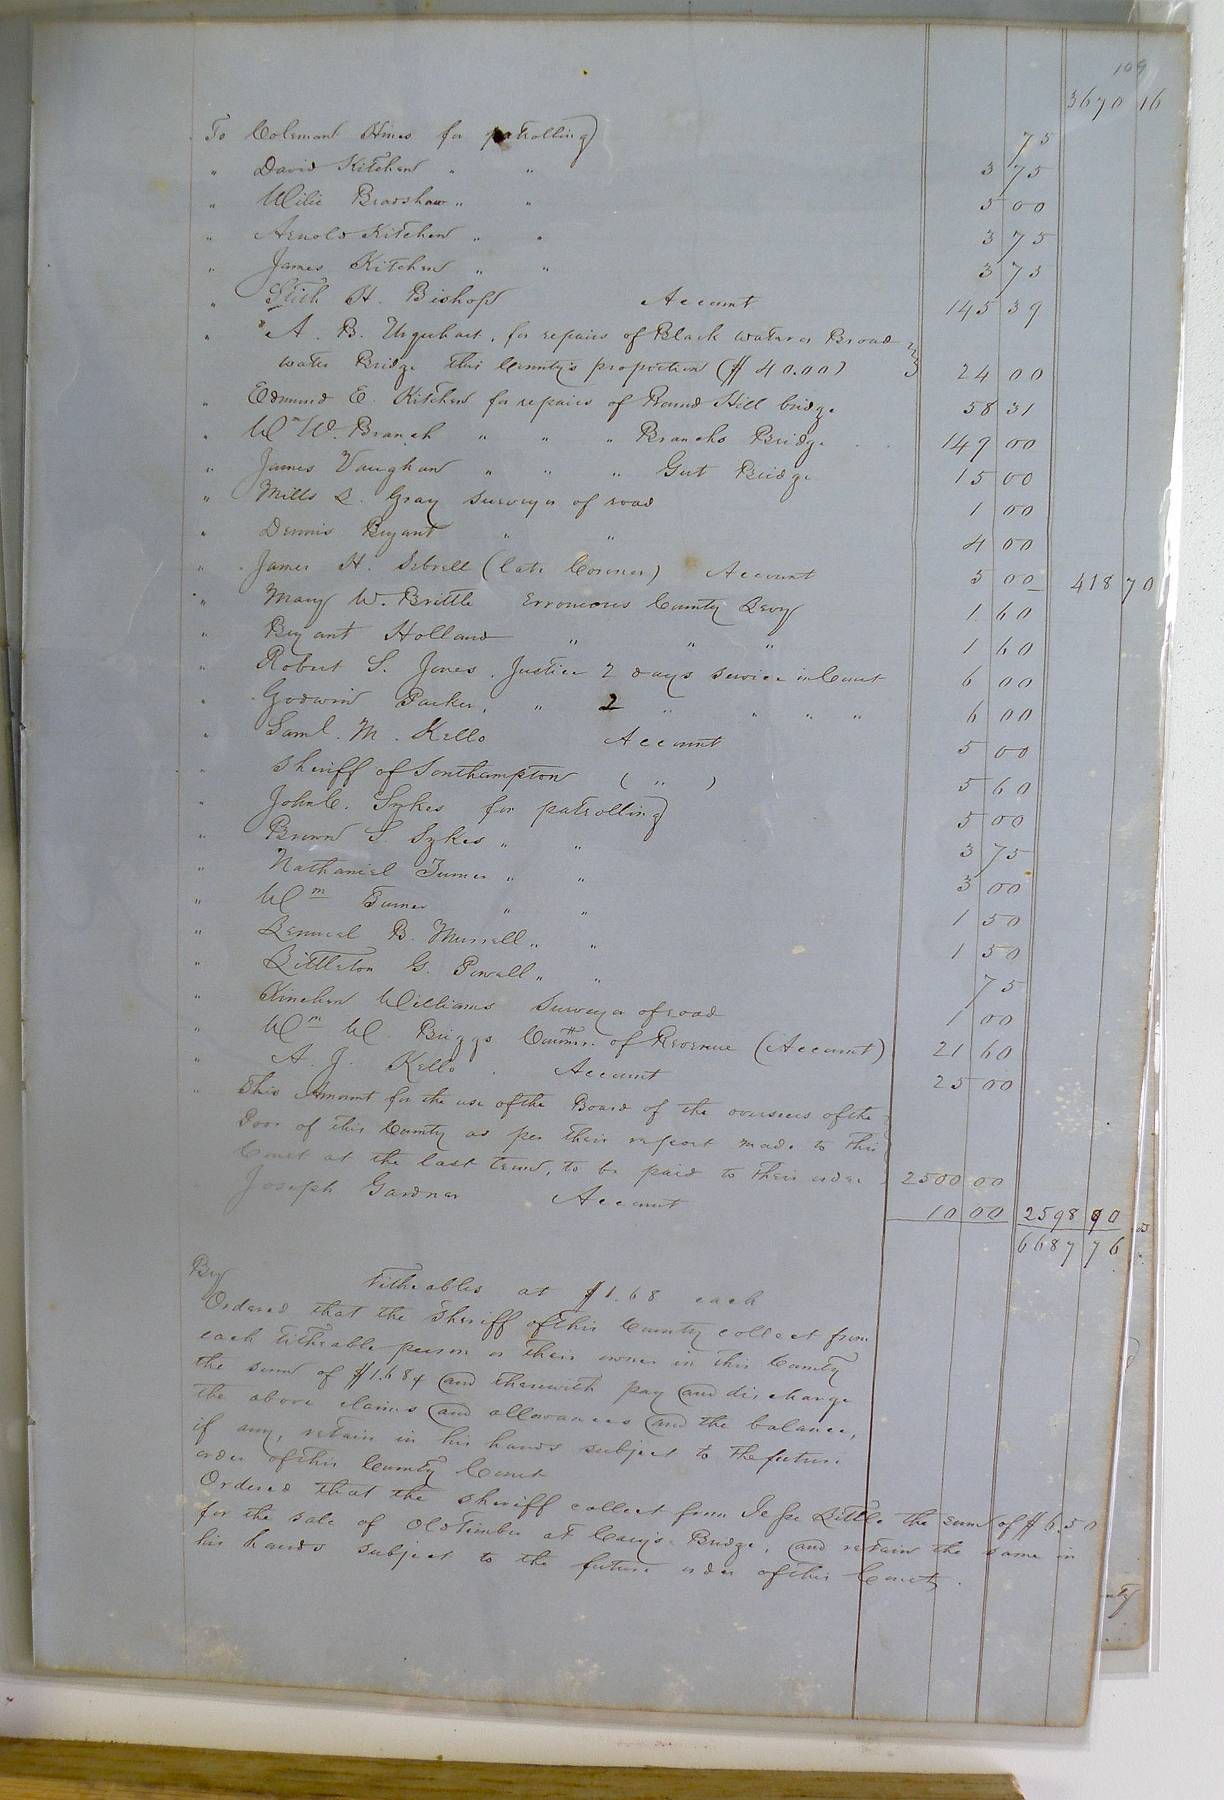 109
3670 16
To Colemant Hines for patrolling 75
" David Kitchen " " 3 75
" Wilie Bradshaw " " 5 00
" Arnold Kitchen " " 3 75
" James Kitchen " " 3 75
" Stith H. Bishop Account 145 39
" A. B. Urquhart, for repairs of Black water or Broad
water Bridge this County's proportion ($40.00) 24 00
" Edmund E. Kitchen for repairs of Round Hill bridge 58 31
" Wm W. Branch " " " Branchs Bridge 149 00
" James Vaughan " " " Gut Bridge 15 00
" Mills L. Gray Surveyor of road 1 00
" Dennis Bryant " " 4 00
" James H. Sebrell (late Coroner) Account 5 00 418 70
" Mary W. Brittle Erroneous County Levy 1 60
" Bryant Holland " " " 1 60
" Robert S. Jones, Justice 2 days service in Court 6 00
" Godwin Parker, " 2 " " " " 6 00
" Saml. M. Kello Account 5 00
" Sheriff of Southampton ( " ) 5 60
" John C. Sykes for patrolling 5 00
" Brown S Sykes " " 3 75
" Nathaniel Turner " " 3 00
" Wm Turner " " 1 50
" Lemuel B. Murrell " " 1 50
" Littleton G. Powell " " 75
" Kinchen Williams Surveyor of road 1 00
" Wm W. Briggs Commr. of Revenue (Account) 21 60
" A. J. Kello. Account 25 00
" This Amount for the use of the Board of the overseers of the
Poor of this County as per their report made to this
Court at the last term, to be paid to their order 2500 00
Joseph Gardner Account 10 00 2598 90
6687 76
By Titheables at $1.68 each
Ordered that the Sheriff of this County collect from
each titheable person or their owner in this County
the sum of $1.68 & and therewith pay and discharge
the above claims and allowances and the balance,
if any, retain in his hands subject to the future
order of this County Court
Ordered that the sheriff collect from Jesse Little the sum of $6.50
for the sale of Old Timber at Cary's Bridge, and retain the same in
his hands subject to the future order of this Court.